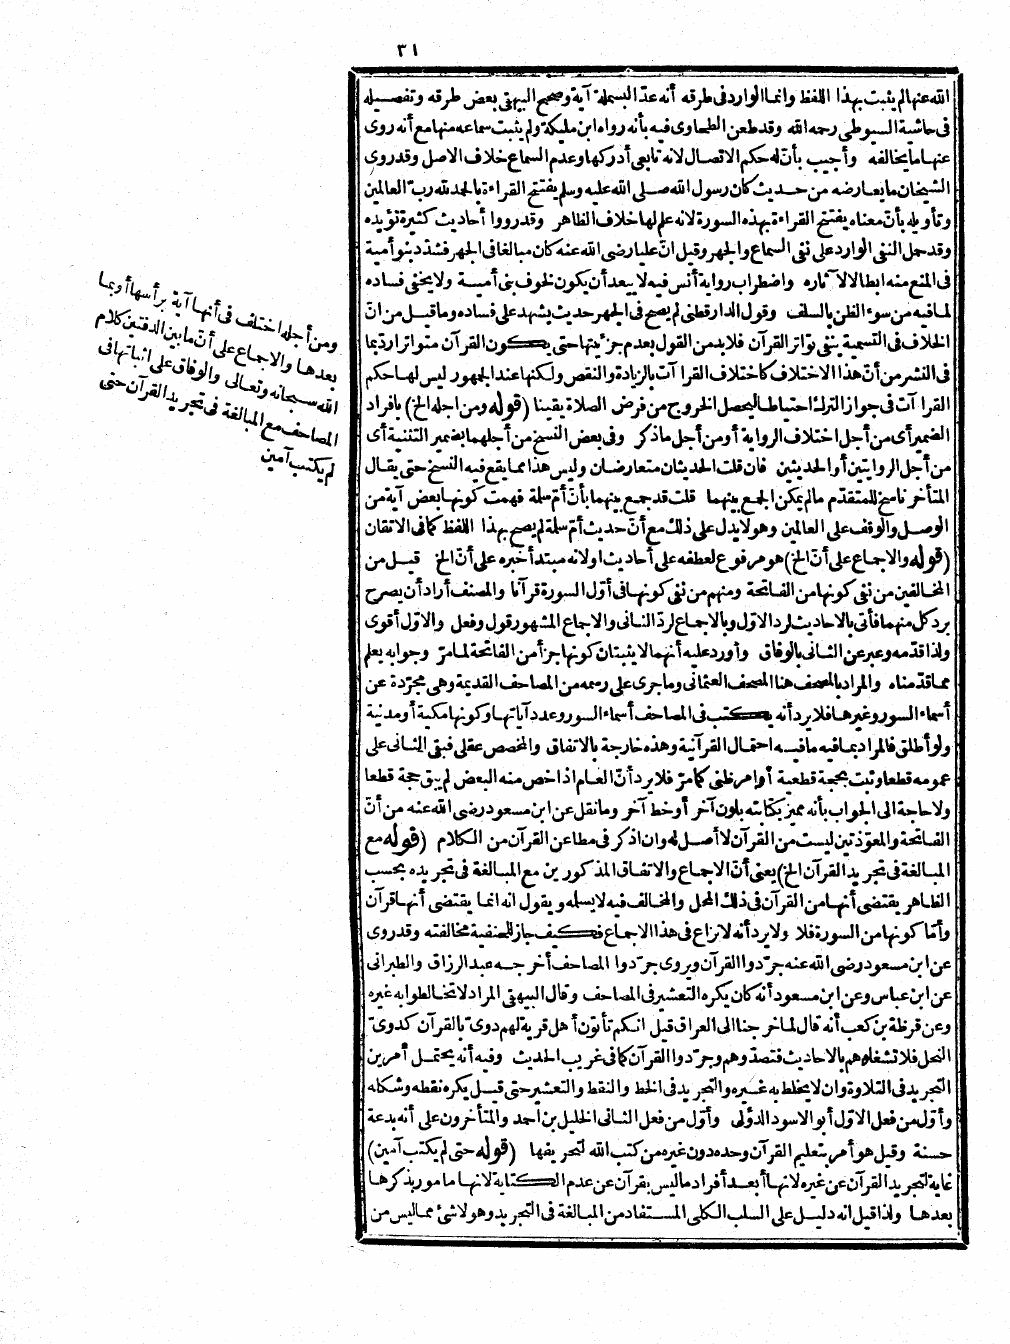 ٣١
الله عنها لم يثبت بهذا اللفظ وانما الوارد فى طرقه أنه عدّ البسملة آية وصحح البيهقى بعض طرقه وتفصيله
فى حاشية السيوطى رحمه الله وقد طعن الطحاوى فيه بأنه رواه ابن مليكة ولم يثبت سماعه منها مع أنه روى
عنها ما يخالفه وأجيب بأنّ له حكم الاتصال لانه تابعى أدركها وعدم السماع خلاف الاصل وقد روى
الشيخان ما يعارضه من حديث كان رسول الله صلى الله عليه وسلم يفتتح القراءة بالحمد لله رب العالمين
وتأويله بأنّ معناه يفتتح القراءة بهذه السورة لانه علم لها خلاف الظاهر وقد رووا أحاديث كثيرة تؤيده
وقد حمل النفى الوارد على نفى السماع والجهر وقيل انّ عليا رضى الله عنه كان مبالغا فى الجهر فشدّد بنو أمية
فى المنع منه ابطالا لآثاره واضطراب رواية أنس فيه لا يبعد أن يكون لخوف بنى أمية ولا يخفى فساده
لما فيه من سوء الظن بالسلف وقول الدارقطنى لم يصح فى الجهر حديث يشهد على فساده وما قيل من انّ
الخلاف فى التسمية ينفى تواتر القرآن فلا بد من القول بعدم جزئيتها حتى يكون القرآن متواترا ردّ بما
فى النشر من أنّ هذا الاختلاف كاختلاف القراآت بالزيادة والنقص ولكنها عند الجمهور ليس لها حكم
القراآت فى جواز الترك احتياطا ليحصل الخروج من فرض الصلاة يقينا (قوله ومن اجله الخ) بافراد
الضمير أى من أجل اختلاف الرواية أو من أجل ما ذكر وفى بعض النسخ من أجلهما بضمير التثنية أى
من أجل الروايتين أو الحديثين فان قلت الحديثان متعارضان وليس هذا مما يقع فيه النسخ حتى يقال
المتأخر ناسخ للمتقدّم ما لم يمكن الجمع بينهما قلت قد جمع بينهما بأنّ أم سلمة فهمت كونها بعض آية من
الوصل والوقف على العالمين وهو لا يدل على ذلك مع أنّ حديث أم سلمة لم يصح بهذا اللفظ كما فى الاتقان
(قوله والاجماع على أنّ الخ) هو مرفوع لعطفه على أحاديث او لانه مبتدأ خبره على أنّ الخ قيل من
المخالفين من نفى كونها من الفاتحة ومنهم من نفى كونها فى أوّل السورة قرآنا والمصنف أراد أن يصرح
برد كل منهما فأتى بالاحاديث لرد الاول وبالاجماع لردّ الثانى والاجماع المشهور قول وفعل والاوّل أقوى
ولذا قدّمه وعبر عن الثانى بالوفاق وأورد عليه أنهما لا يثبتان كونها جزأ من الفاتحة لما مرّ وجوابه يعلم
مما قدّمناه والمراد بالمصحف هنا المصحف العثمانى وما جرى على رسمه من المصاحف القديمة وهى مجرّدة عن
أسماء السور وغيرها فلا يرد أنه يكتب فى المصاحف أسماء السور وعدد آياتها وكونها مكية أو مدنية
ولو أطلق فالمراد بما فيه ما فيه احتمال القرآنية وهذه خارجة بالاتفاق والمخصص عقلى فبقى الثانى على
عمومه قطعا وثبت بحجة قطعية أو امر ظنى كما مرّ فلا يرد أنّ العام اذا خص منه البعض لم يبق حجة قطعا
ولا حاجة الى الجواب بأنه مميز بكتابته بلون آخر أو خط آخر وما نقل عن ابن مسعود رضى الله عنه من أنّ
الفاتحة والمعوّذتين ليست من القرآن لا أصل له وان اذكر فى مطاعن القرآن من الكلام (قوله مع
المبالغة فى تجريد القرآن الخ) يعنى أنّ الاجماع والاتفاق المذكورين مع المبالغة فى تجريده بحسب
الظاهر يقتضى أنها من القرآن فى ذلك المحل والمخالف فيه لا يسلمه ويقول انه انما يقتضى أنها قرآن
وأمّا كونها من السورة فلا ولا يرد أنه لا نزاع فى هذا الاجماع فكيف جاز للحنفية مخالفته وقد روى
عن ابن مسعود رضى الله عنه جرّدوا القرآن ويروى جرّدوا المصاحف أخرجه عبد الرزاق والطبرانى
عن ابن عباس وعن ابن مسعود أنه كان يكره التعشير فى المصاحف وقال البيهقى المراد لا تخالطوا به غيره
وعن قرظة بن كعب أنه قال لما خرجنا الى العراق قيل انكم تأتون أهل قرية لهم دوىّ بالقرآن كدوىّ
النحل فلا تشغلوهم بالاحاديث فتصدّوهم وجرّدوا القرآن كما فى غريب الحديث وفيه أنه يحتمل أمرين
التجريد فى التلاوة وان لا يخلط به غيره والتجريد فى الخط والنقط والتعشير حتى قيل يكره نقطه وشكله
وأوّل من فعل الاول أبو الاسود الدؤلى وأوّل من فعل الثانى الخليل بن احمد والمتأخرون على أنه بدعة
حسنة وقيل هو أمر بتعليم القرآن وحده دون غيره من كتب الله لتحريفها (قوله حتى لم يكتب آمين)
غاية لتجريد القرآن عن غيره لانها أبعد أفراد ما ليس بقرآن عن عدم الكتابة لانها مأمور بذكرها
بعدها ولذا قيل انه دليل على السلب الكلى المستفاد من المبالغة فى التجريد وهو لا شئ مما ليس من
ومن أجله اختلف فى أنها آية برأسها أو بما
بعدها والاجماع على أنّ ما بين الدفتين كلام
الله سبحانه وتعالى والوفاق على اثباتها فى
المصاحف مع المبالغة فى تجريد القرآن حتى
لم يكتب آمين